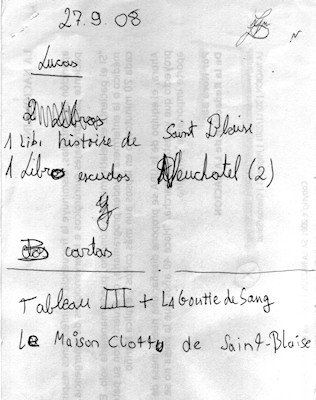 27.9.08
Lucas
2 Libros
1 Lib, histoire de Saint Blaise
1 Libro escudos Neuchatel (2)
y
Dos cartas
Tableau III + La Goutte de Sang
le Maison Clottu de Saint-Blaise